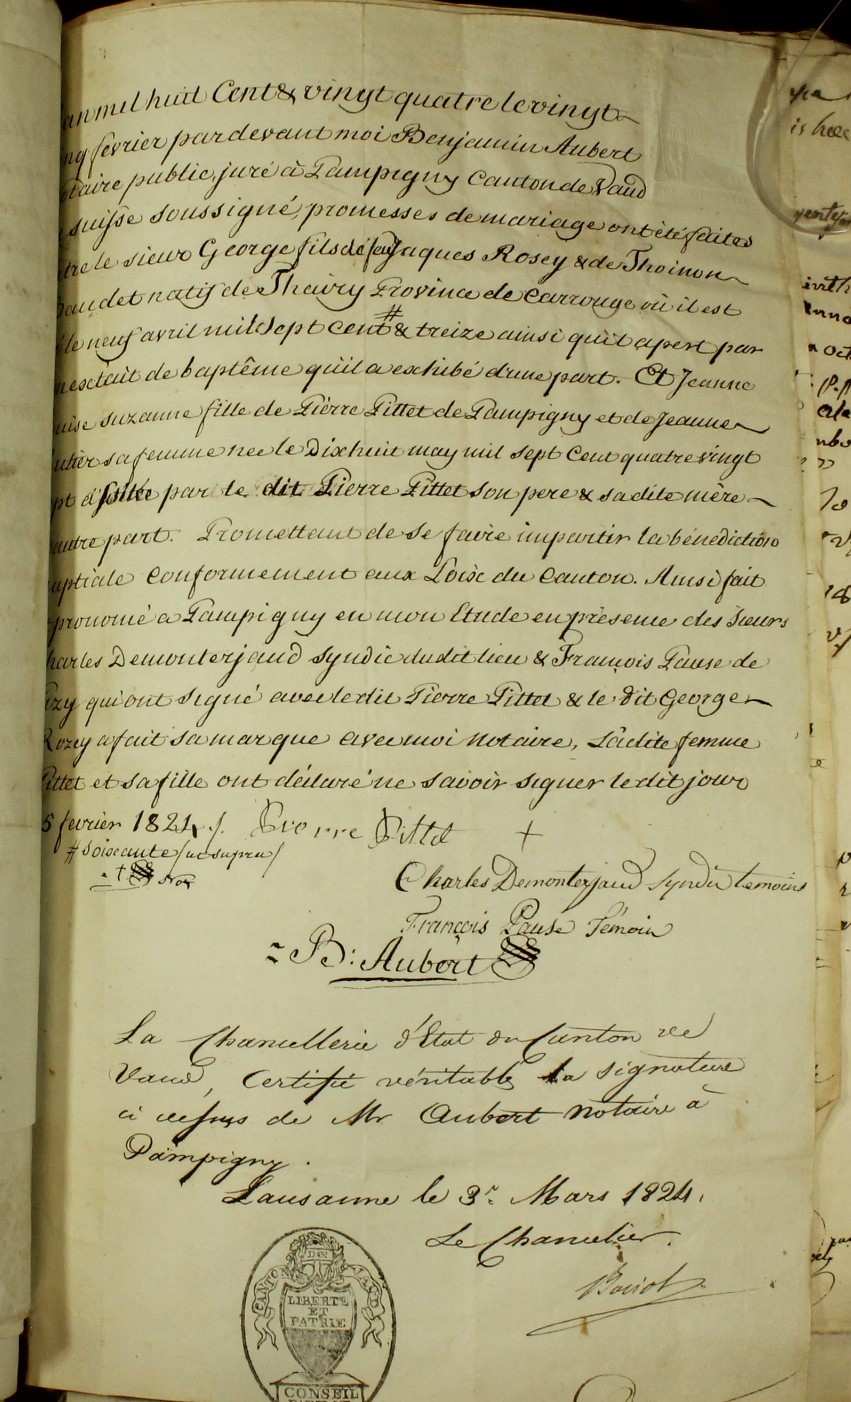 an mil huit Cent & vingt quatre le vingt
nq fevrier pardevant moi Benjamin Aubert
otaire public, juré à Pampigny Canton de Vaud
suisse soussigné, promesses de mariage ont été faites
tre le sieur George fils de feu Jaques Rosey & de Thoinon
audet natif de Thairy Province de Carrouge où il est
le neuf avril mil sept cent # & treize ainsi qu'il apert par
extrait de baptême qu'il a exhibé d'une part. Et Jeanne
uise Suzanne fille de Pierre Pittet de Pampigny et de Jeanne
sa femme née le Dix huit may mil sept Cent quatre vingt
pt par le dit Pierre Pittet son pere & sa dite mère
autre part. Promettant de se faire impartir la bénédiction
uptiale Conformement aux Loix du Canton. Ainsi fait
prononcé a Pampigny en mon Etude en présence des Sieurs
harles Demonterjaud syndic du dit lieu & François Pause de
zy qui ont signé avec le dit Pierre Pittet & le dit George
Rozey a fait sa marque avec moi Notaire, La dite femme
Pittet et sa fille ont déclaré ne savoir signer le dit jour
5 fevrier 1824 Pierre Pittet +
# soixante / ut supra /
+ Not
Charles Demonterjaud Syndic temoins
François Pause Témoin
B: Aubert
La Chancellerie d'Etat du Canton de
Vaud, Certifie véritable la signature
ci dessus de Mr Aubert notaire à
Pampigny.
Lausanne le 3r. Mars 1824.
Le Chancelier.
CANTON DE
LIBERTÉ
ET
PATRIE
CONSEIL